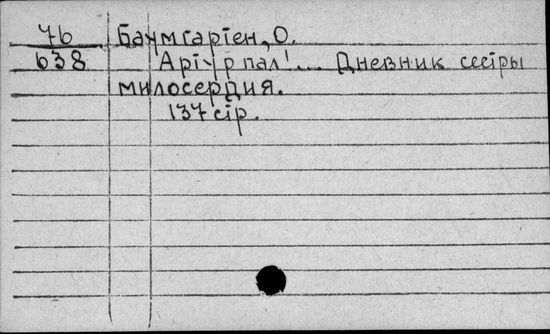 76 Баумгартен, О.
638 "Артур пал!... Дневник сестры
милосердия.
137 стр.